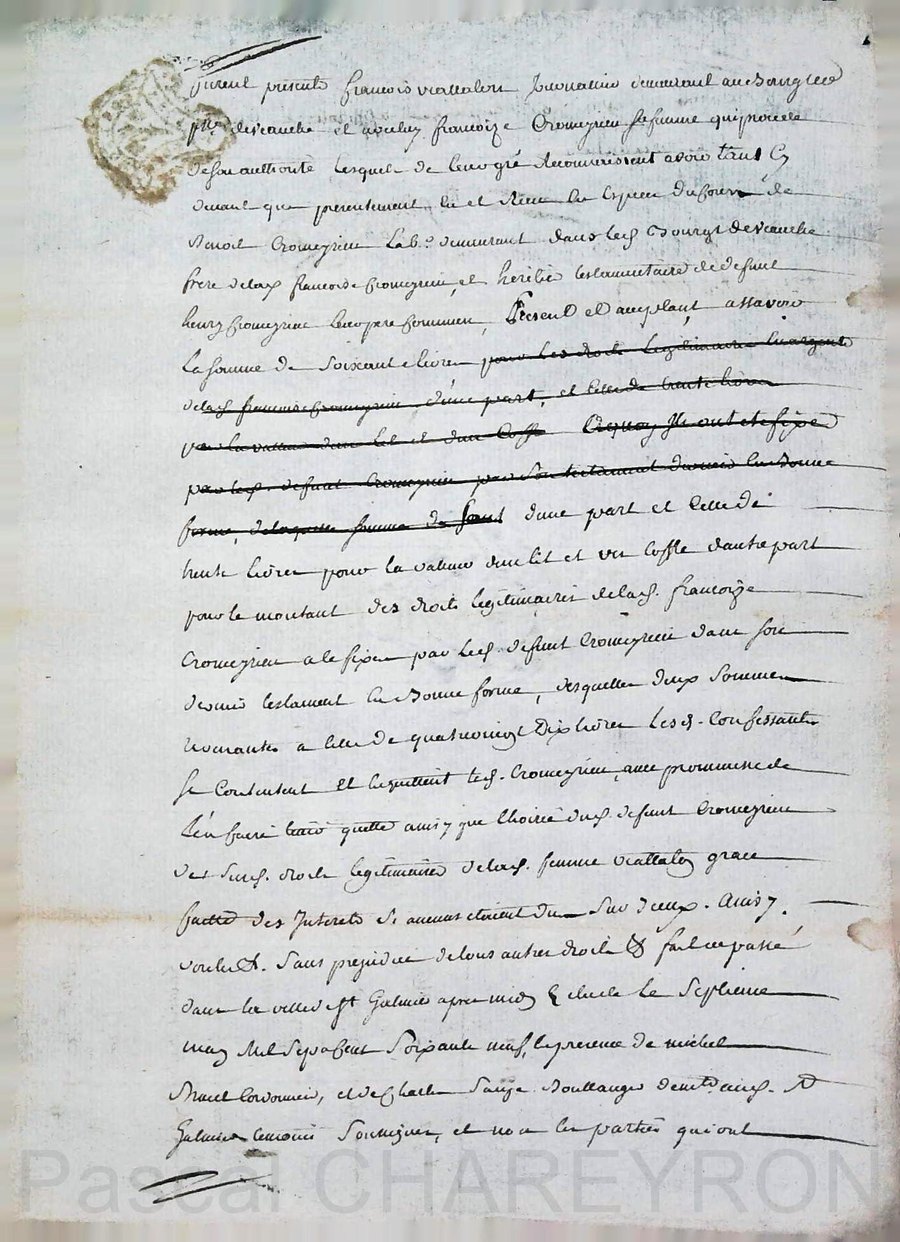 furent présents françois viallaton Journallier demeurant au Bourg et
psse de veauche et avec luy francoize Cromeyrieu sa femme qui procede
de son authorité lesquels de leur gré Reconnoissent avoir tant cy
devant que presentement eu et Receu en Espece du Cours de
Benoit Cromeyrieu Labr. demeurant dans led. Bourg de veauche
frere de lad. francoise Cromeyrieu, et heritier testamentaire de defunt
henry Cromeyrieu leur pere Commun, Present et acceptant, assavoir
La somme de Soixante livres pour les droits legitimaires en argent
de lad. francoise Cromeyrieu, d'une part, et celle de trente livres
pour la valleur d'un Lit et d'un Coffre a quoy Ils ont été fixés
par led. defunt Cromeyrieu par son testament dernier en Bonne
forme, de laquelle somme de d'une part et celle de
trente livres pour la valeur d'un lit et un Coffre d'autre part
pour le montant des droits legitimaires de lad. francoize
Cromeyrieu a le fixer par led. defunt Cromeyrieu dans son
dernier testament en Bonne forme, desquelles deux sommes
revenantes a celle de quatrevingt Dix livres Lesd. Confessants
se Contentent et en quittent led. Cromeyrieu, avec promesse de
l'en faire tenir quitte ainsy que l'hoirie dud. defunt Cromeyrieu
des susd. droits legitimaires de lad. femme viallaton grace
faitte des Interets si aucuns etoient dus sur Iceux. Ainsy
voulu &. Sans prejudice de tous autres droits & fait et passé
dans la ville de St Galmier apres midy Etude le Septieme
may Mil Sept Cent Soixante neuf, En presence de michel
Cordonnier, et de Charles Boullanger demts. aud. St
Galmier temoins Soussignés, et non les parties qui ont
Pascal CHAREYRON